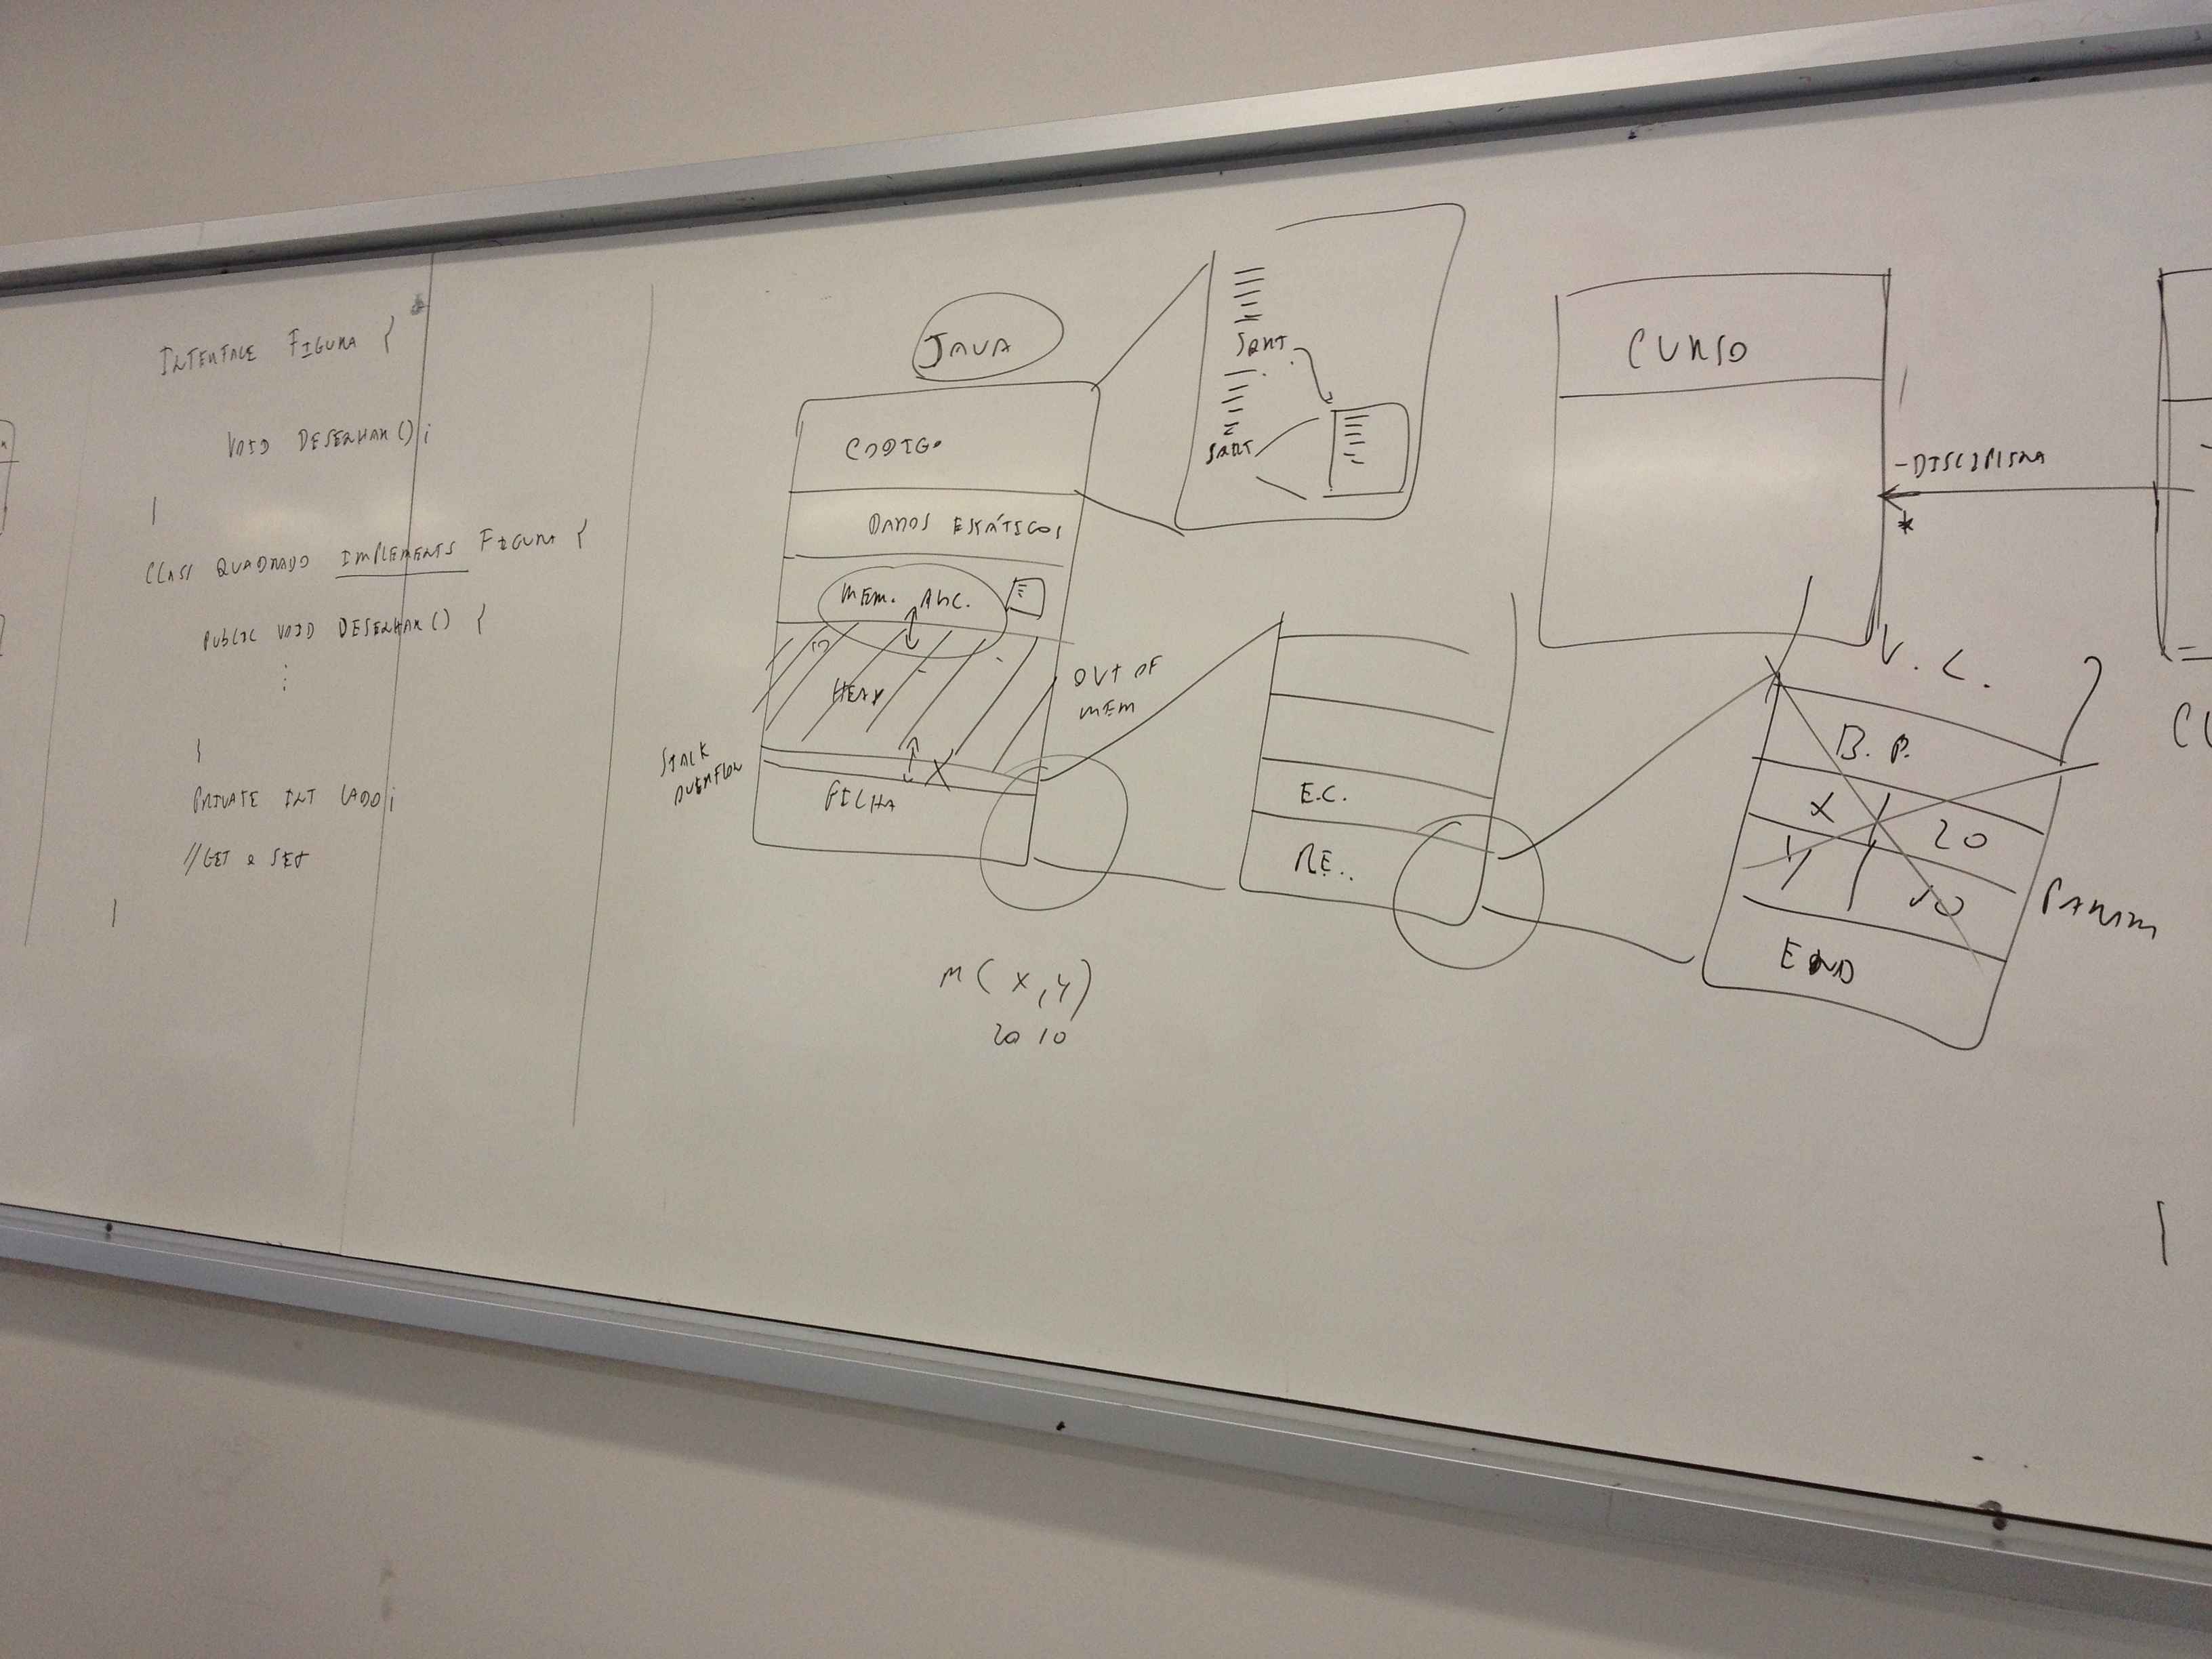 INTERFACE FIGURA {
VOID DESENHAR();
}
CLASS QUADRADO IMPLEMENTS FIGURA {
PUBLIC VOID DESENHAR() {
⋮
}
PRIVATE INT LADO;
//GET e SET
}
JAVA
CODIGO
DADOS ESTÁTICOS
MEM. ALC.
HEAP
OUT OF
MEM
STACK
OVERFLOW
PILHA
M(X,Y)
20 10
SQRT
SQRT
E.C.
R.E..
CURSO
-DISCIPLINA
*
V.L.
B.P.
X 20
Y 10
END
PARAM
CU